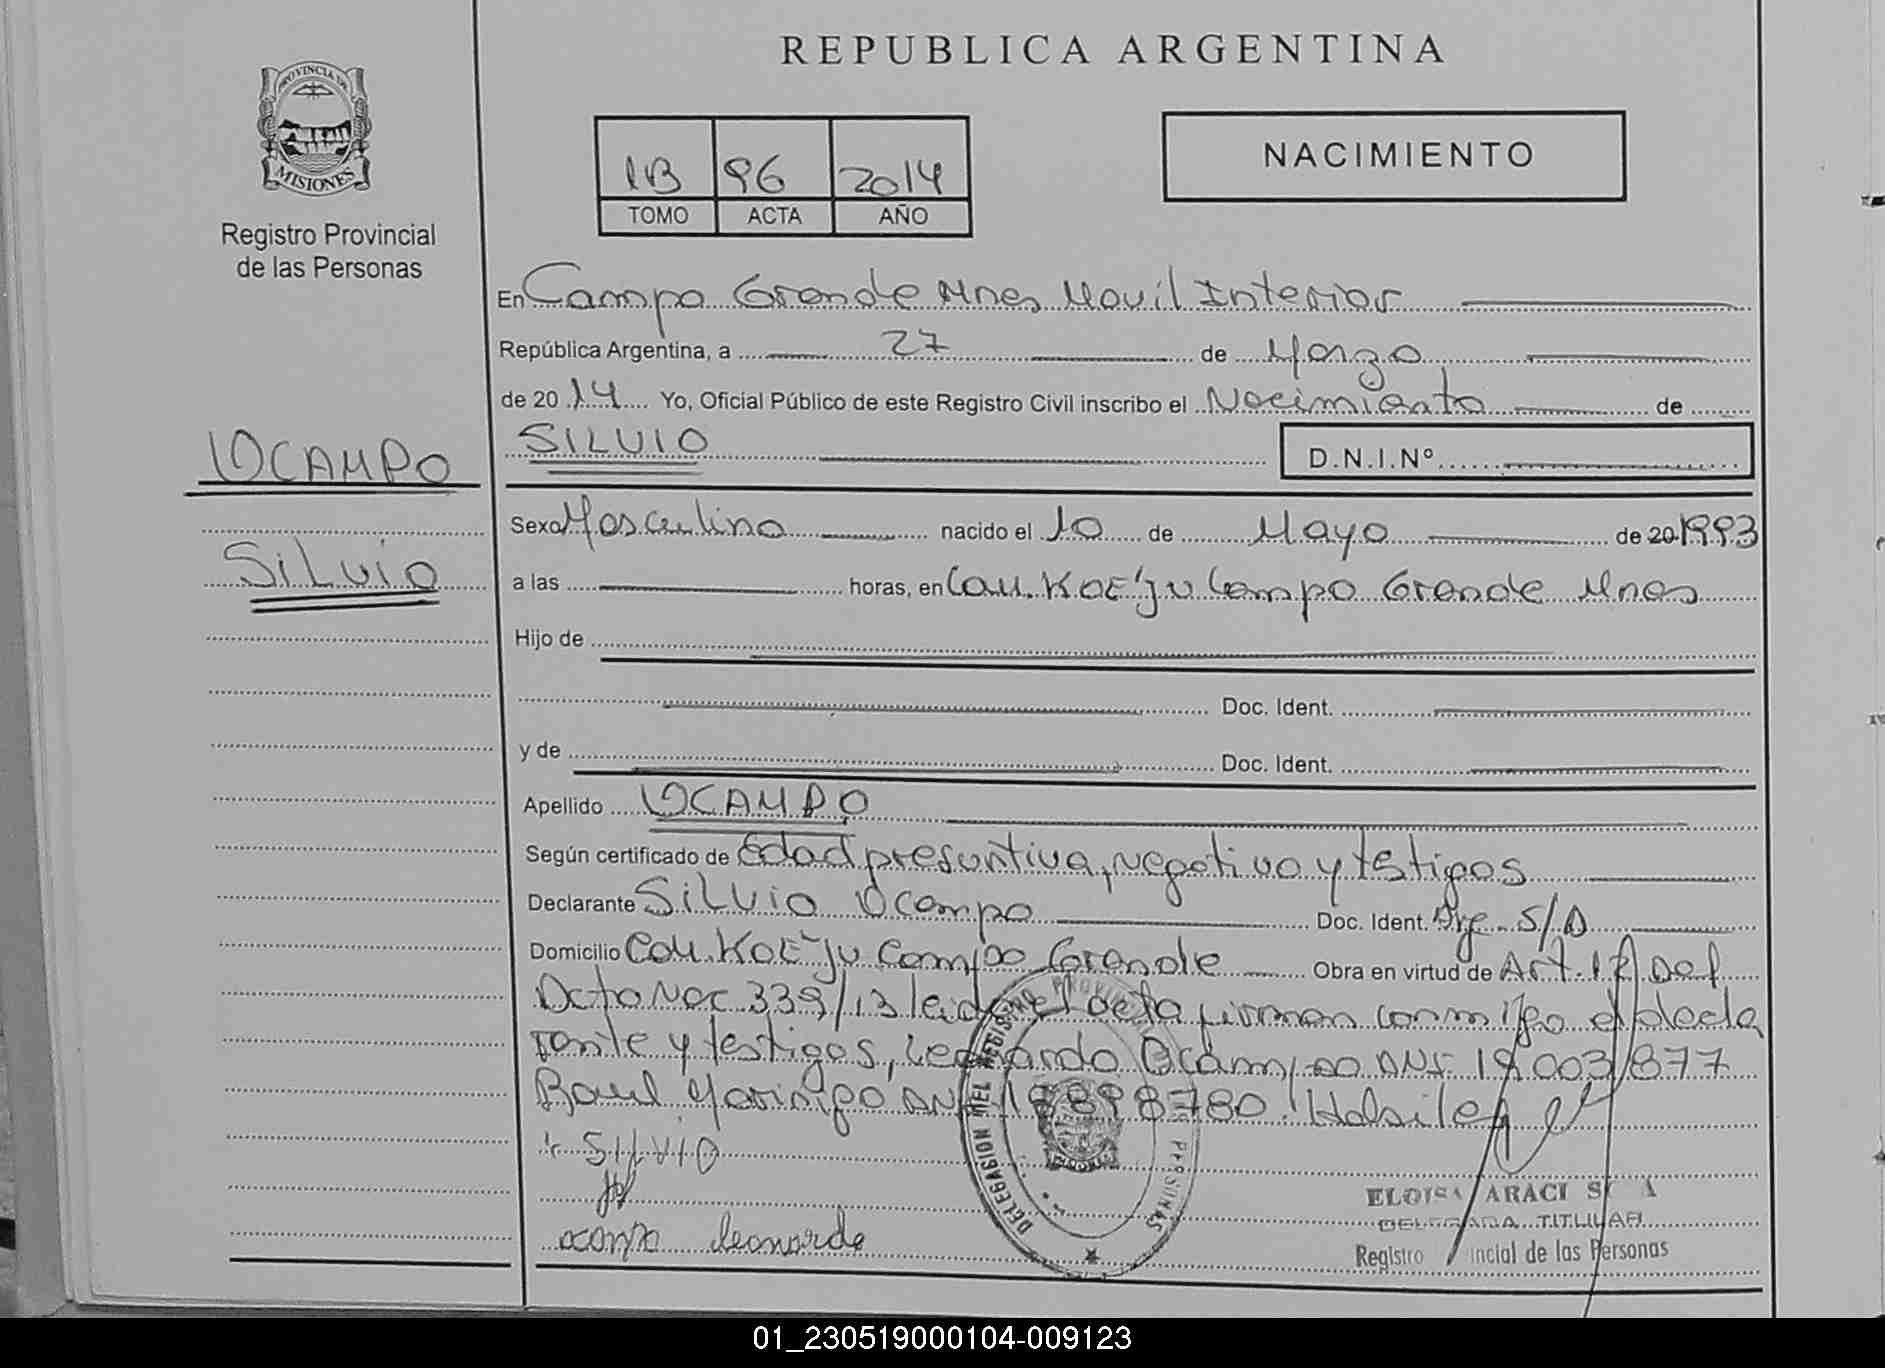 REPUBLICA ARGENTINA
PROVINCIA DE
MISIONES
Registro Provincial
de las Personas
1B 96 2014
TOMO ACTA AÑO
NACIMIENTO
En Campo Grande Mnes Movil Interior
República Argentina, a 27 de Marzo
de 20 14 Yo, Oficial Público de este Registro Civil inscribo el Nacimiento de
OCAMPO
SILVIO
SILVIO D.N.I.Nº
Sexo Masculino nacido el 10 de Mayo de 20 1993
a las horas, en Com. KOE'JU Campo Grande Mnes
Hijo de
Doc. Ident.
y de Doc. Ident.
Apellido OCAMPO
Según certificado de Edad presuntiva, negativo y testigos
Declarante SILVIO Ocampo Doc. Ident. Arg. S/D
Domicilio Com. KOE'JU Campo Grande Obra en virtud de Art. Del
Dcto Nac 339/13 leida el acta firman conmigo el decla
rante y testigos, Leonardo Ocampo DNI 19.003.877
Raul DNI 18898780
SILVIO
ocampo leonardo
DELEGACION DEL REGISTRO PROVINCIAL PERSONAS
ELOISA ARACI
DELEGADA TITULAR
Registro de las Personas
01_230519000104-009123